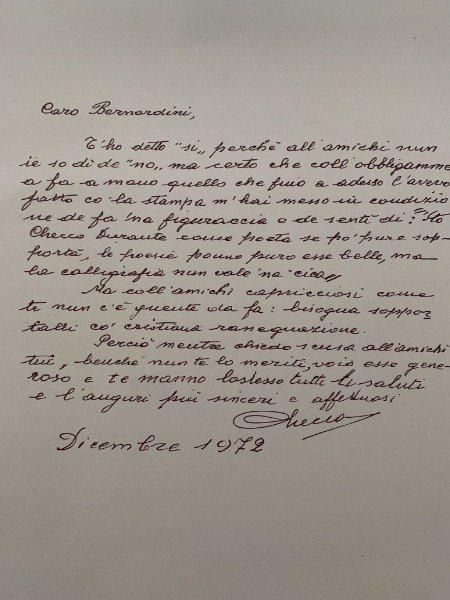 Caro Bernardini,
T'ho detto "si,, perché all'amichi nun
ie so dì de "no,, ma certo che coll'obbligamme
a fa a mano quello che fino a adesso l'avevo
fatto co' la stampa m'hai messo in condizio
ne de fa 'na figuraccia o de sentì dì: "'Sto
Checco Durante come poeta se pò pure sop-
portà, le poesie ponno puro esse belle, ma
la calligrafia nun vale 'na cica,,
Ma coll'amichi capricciosi come
te nun c'è gnente da fa: bisogna soppor-
talli co' cristiana rassegnazione.
Perciò mentre chiedo scusa all'amichi
tui, benché nun te lo meriti, vojo esse gene-
roso e te manno lostesso tutti li saluti
e l'auguri più sinceri e affettuosi
Checco
Dicembre 1972